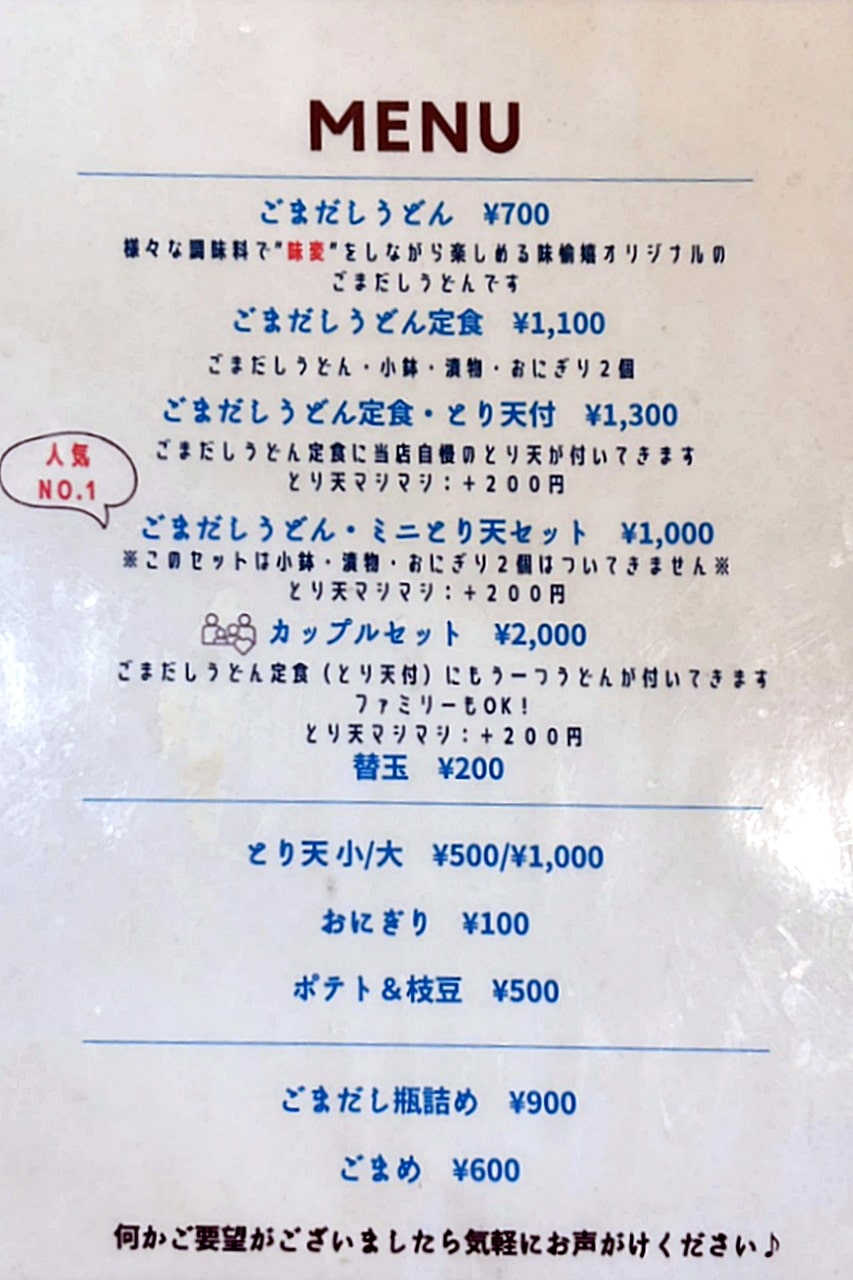 MENU
ごまだしうどん ¥700
様々な調味料で"味変"をしながら楽しめる味愉嬉オリジナルの
ごまだしうどんです
ごまだしうどん定食 ¥1,100
ごまだしうどん・小鉢・漬物・おにぎり2個
ごまだしうどん定食・とり天付 ¥1,300
ごまだしうどん定食に当店自慢のとり天が付いてきます
とり天マシマシ：＋200円
人気
NO.1
ごまだしうどん・ミニとり天セット ¥1,000
※このセットは小鉢・漬物・おにぎり2個はついてきません※
とり天マシマシ：＋200円
カップルセット ¥2,000
ごまだしうどん定食（とり天付）にもう一つうどんが付いてきます
ファミリーもOK！
とり天マシマシ：＋200円
替玉 ¥200
とり天 小/大 ¥500/¥1,000
おにぎり ¥100
ポテト＆枝豆 ¥500
ごまだし瓶詰め ¥900
ごまめ ¥600
何かご要望がございましたら気軽にお声がけください♪